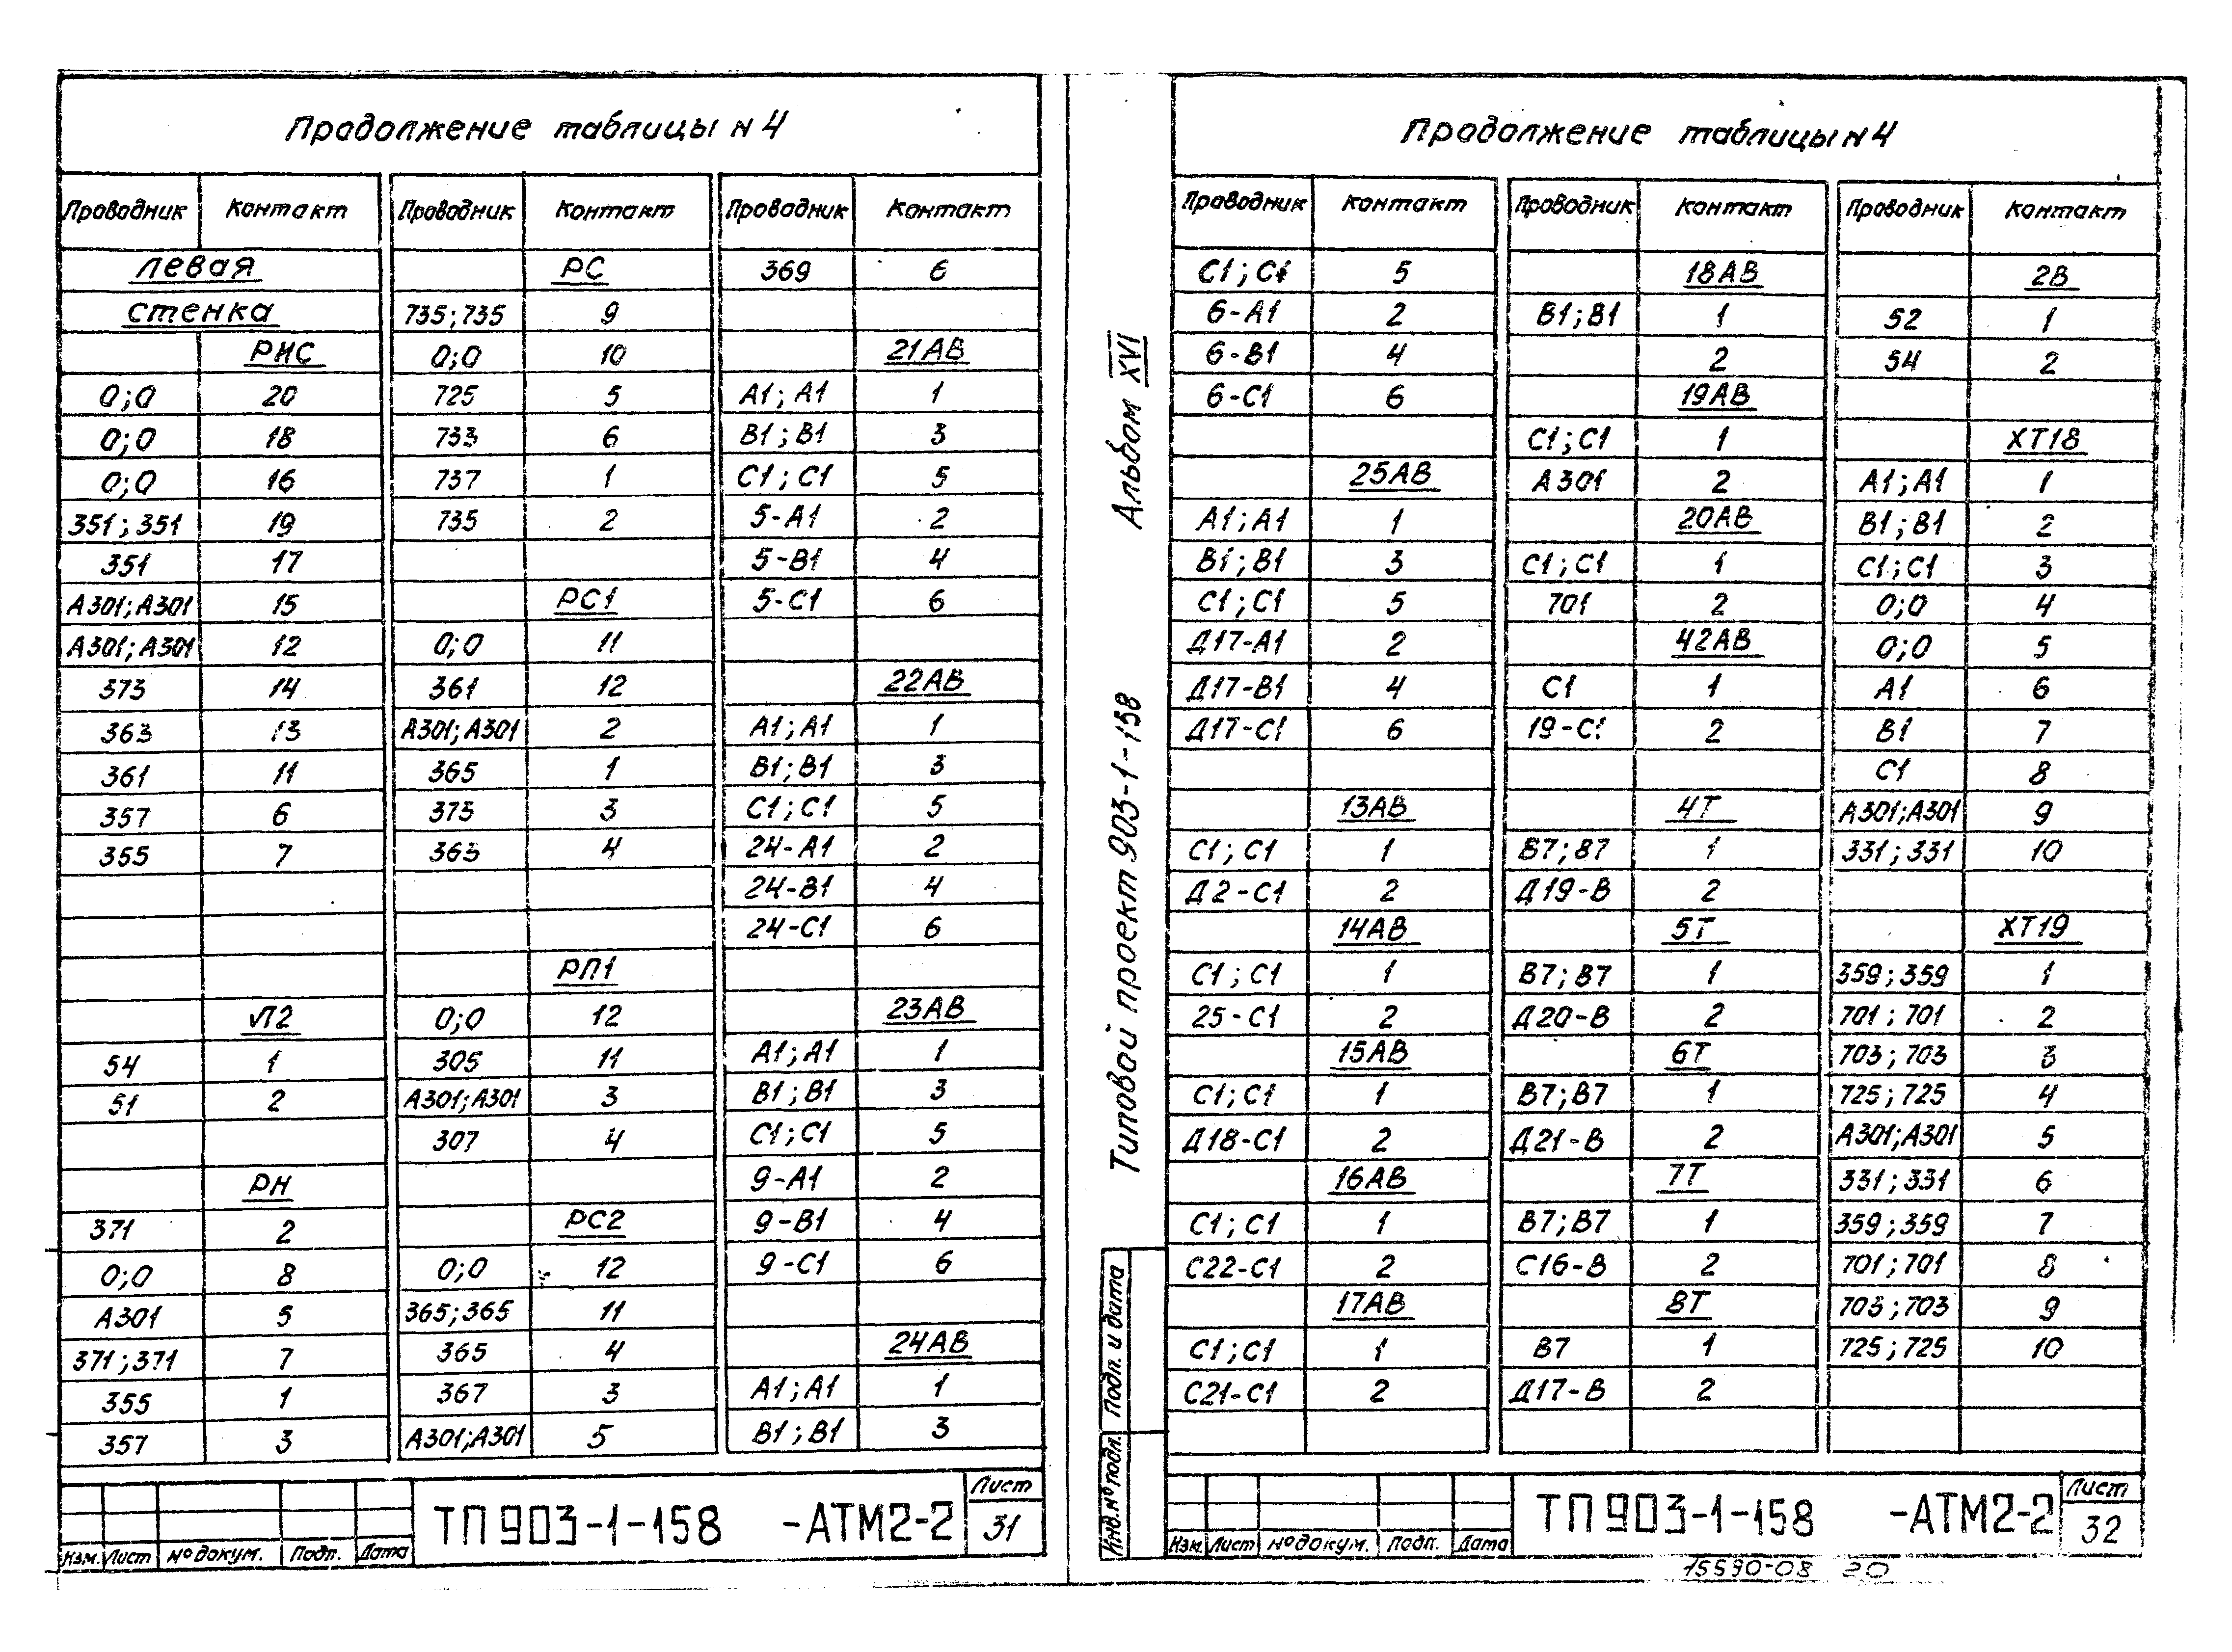 Продолжение таблицы N 4
Проводник Контакт Проводник Контакт Проводник Контакт
Левая РС 369 6
стенка 735;735 9
РИС 0;0 10 21АВ
0;0 20 725 5 А1;А1 1
0;0 18 733 6 В1;В1 3
0;0 16 737 1 С1;С1 5
351;351 19 735 2 5-А1 2
351 17 5-В1 4
А301;А301 15 РС1 5-С1 6
А301;А301 12 0;0 11
373 14 361 12 22АВ
363 13 А301;А301 2 А1;А1 1
361 11 365 1 В1;В1 3
357 6 373 3 С1;С1 5
355 7 363 4 24-А1 2
24-В1 4
24-С1 6
РП1
Л2 0;0 12 23АВ
54 1 305 11 А1;А1 1
51 2 А301;А301 3 В1;В1 3
307 4 С1;С1 5
РН 9-А1 2
371 2 РС2 9-В1 4
0;0 8 0;0 12 9-С1 6
А301 5 365;365 11
371;371 7 365 4 24АВ
355 1 367 3 А1;А1 1
357 3 А301;А301 5 В1;В1 3
ТП 903-1-158 -АТМ2-2
Лист
31
Изм. Лист № докум. Подп. Дата
Альбом XVI
Типовой проект 903-1-158
Подп. и дата
Инв.№ подл.
Продолжение таблицы N 4
Проводник Контакт Проводник Контакт Проводник Контакт
С1;С1 5 18АВ 2В
6-А1 2 В1;В1 1 52 1
6-В1 4 2 54 2
6-С1 6 19АВ
С1;С1 1 ХТ18
25АВ А301 2 А1;А1 1
А1;А1 1 20АВ В1;В1 2
В1;В1 3 С1;С1 1 С1;С1 3
С1;С1 5 701 2 0;0 4
Д17-А1 2 42АВ 0;0 5
Д17-В1 4 С1 1 А1 6
Д17-С1 6 19-С1 2 В1 7
С1 8
13АВ 4Т А301;А301 9
С1;С1 1 В7;В7 1 331;331 10
Д2-С1 2 Д19-В 2
14АВ 5Т ХТ19
С1;С1 1 В7;В7 1 359;359 1
25-С1 2 Д20-В 2 701;701 2
15АВ 6Т 703;703 3
С1;С1 1 В7;В7 1 725;725 4
Д18-С1 2 Д21-В 2 А301;А301 5
16АВ 7Т 331;331 6
С1;С1 1 В7;В7 1 359;359 7
С22-С1 2 С16-В 2 701;701 8
17АВ 8Т 703;703 9
С1;С1 1 В7 1 725;725 10
С21-С1 2 Д17-В 2
ТП 903-1-158 -АТМ2-2
Лист
32
Изм. Лист № докум. Подп. Дата
15590-08 20